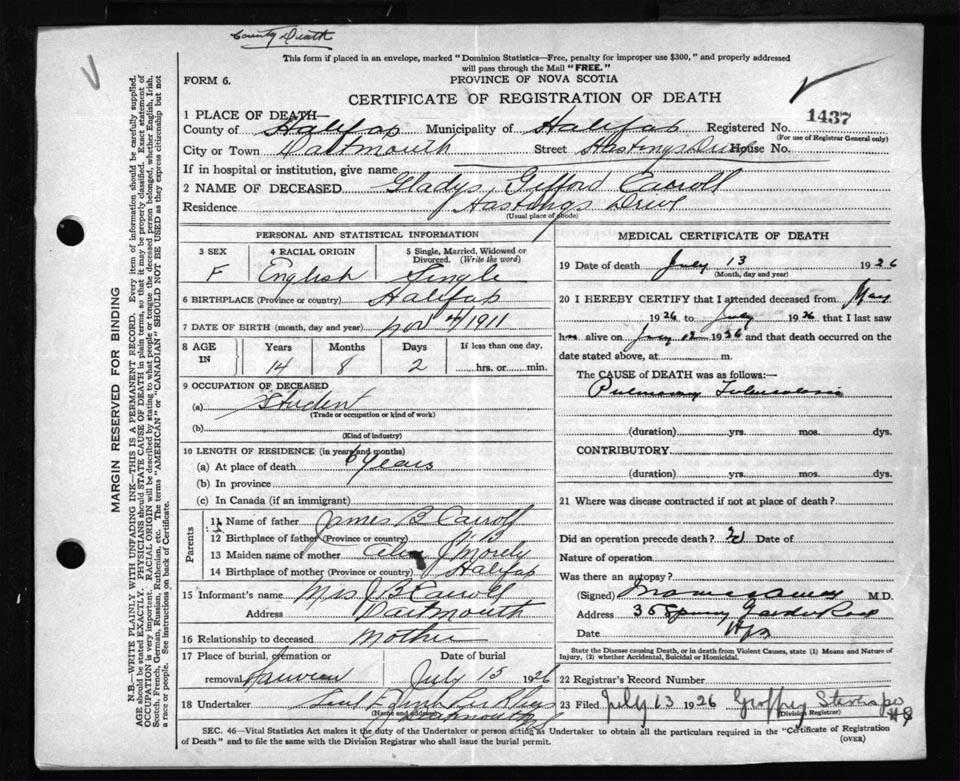 County Death
This form if placed in an envelope, marked "Dominion Statistics—Free, penalty for improper use $300," and properly addressed
will pass through the Mail "FREE."
FORM 6.
PROVINCE OF NOVA SCOTIA
CERTIFICATE OF REGISTRATION OF DEATH
1437
1 PLACE OF DEATH—
County of Halifax Municipality of Halifax Registered No.
(For use of Registrar General only)
City or Town Dartmouth Street Hastings Drive House No.
If in hospital or institution, give name
2 NAME OF DECEASED Gladys Gifford Carroll
Residence Hastings Drive
(Usual place of abode)
PERSONAL AND STATISTICAL INFORMATION
3 SEX 4 RACIAL ORIGIN 5 Single, Married, Widowed or
Divorced. (Write the word)
F English Single
6 BIRTHPLACE (Province or country) Halifax
7 DATE OF BIRTH (month, day and year) Nov 4/1911
8 AGE IN Years Months Days If less than one day,
14 8 2 hrs. or min.
9 OCCUPATION OF DECEASED
(a) Student
(Trade or occupation or kind of work)
(b)
(Kind of industry)
10 LENGTH OF RESIDENCE (in years and months)
(a) At place of death 6 years
(b) In province
(c) In Canada (if an immigrant)
Parents
11 Name of father James B Carroll
12 Birthplace of father (Province or country) N B
13 Maiden name of mother J Morely
14 Birthplace of mother (Province or country) Halifax
15 Informant's name Mrs J B Carroll
Address Dartmouth
16 Relationship to deceased Mother
17 Place of burial, cremation or Date of burial
removal July 15 1926
18 Undertaker
(Name and address) Dartmouth
MEDICAL CERTIFICATE OF DEATH
19 Date of death July 13 1926
(Month, day and year)
20 I HEREBY CERTIFY that I attended deceased from May
1926 to July 1926 that I last saw
h alive on July 12 1926 and that death occurred on the
date stated above, at m.
The CAUSE OF DEATH was as follows:—
Pulmonary Tuberculosis
(duration) yrs. mos. dys.
CONTRIBUTORY
(duration) yrs. mos. dys.
21 Where was disease contracted if not at place of death?
Did an operation precede death? Date of
Nature of operation
Was there an autopsy?
(Signed) M.D.
Address Spring Garden Road
Date Hfx
State the Disease causing Death, or in death from Violent Causes, state (1) Means and Nature of
Injury, (2) whether Accidental, Suicidal or Homicidal.
22 Registrar's Record Number
23 Filed July 13 1926 Geoffrey
(Division Registrar)
SEC. 46—Vital Statistics Act makes it the duty of the Undertaker or person acting as Undertaker to obtain all the particulars required in the "Certificate of Registration
of Death" and to file the same with the Division Registrar who shall issue the burial permit.
(OVER)
MARGIN RESERVED FOR BINDING
N.B.—WRITE PLAINLY WITH UNFADING INK—THIS IS A PERMANENT RECORD. Every item of information should be carefully supplied.
AGE should be stated EXACTLY. PHYSICIANS should STATE CAUSE OF DEATH in plain terms, so that it may be properly classified. Exact statement of
OCCUPATION is very important. RACIAL ORIGIN will be described by stating to what people or tongue the deceased person belonged, whether English, Irish,
Scotch, French, German, Russian, Ruthenian, etc. The terms "AMERICAN" or "CANADIAN" SHOULD NOT BE USED as they express citizenship but not
a race or people. See instructions on back of Certificate.